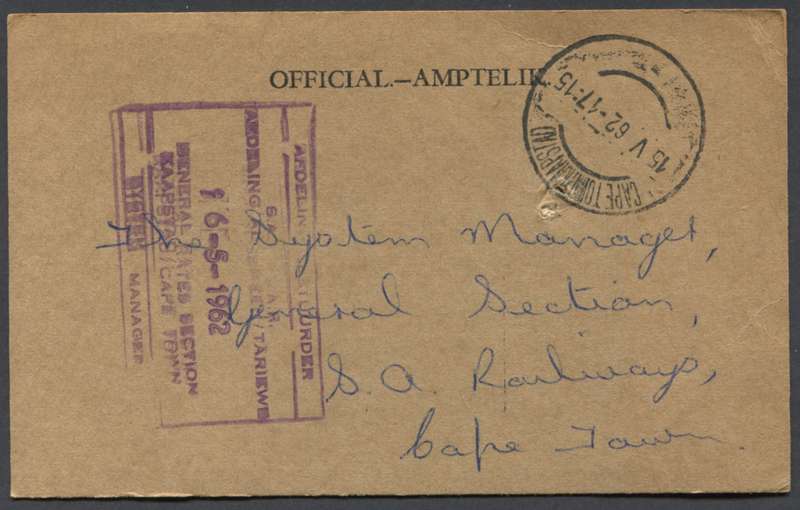 OFFICIAL.—AMPTELIK.
CAPE TOWN KAAPSTAD
15 V 62-17:15
AFDELIN STUURDER
S.A. A.R.
AFDELING TARIEWE
16-5-1962
GENERAL RATES SECTION
KAAPSTAD/CAPE TOWN
SYSTEM MANAGER
The System Manager,
General Section,
S.A. Railways,
Cape Town.